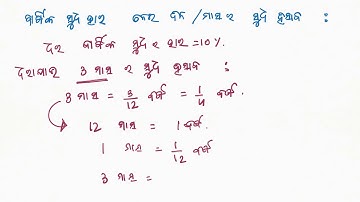 ବାର୍ଷିକ ସୁଧ ହାର ନେଇ ଦିନ / ମାସ ର ସୁଧ ହିସାବ :
ଦତ୍ତ ବାର୍ଷିକ ସୁଧ ର ହାର = 10 %.
3 ମାସ ର ସୁଧ ହିସାବ :
3 ମାସ = 3/12 ବର୍ଷ = 1/4 ବର୍ଷ.
12 ମାସ = 1 ବର୍ଷ.
1 ମାସ = 1/12 ବର୍ଷ
3 ମାସ =